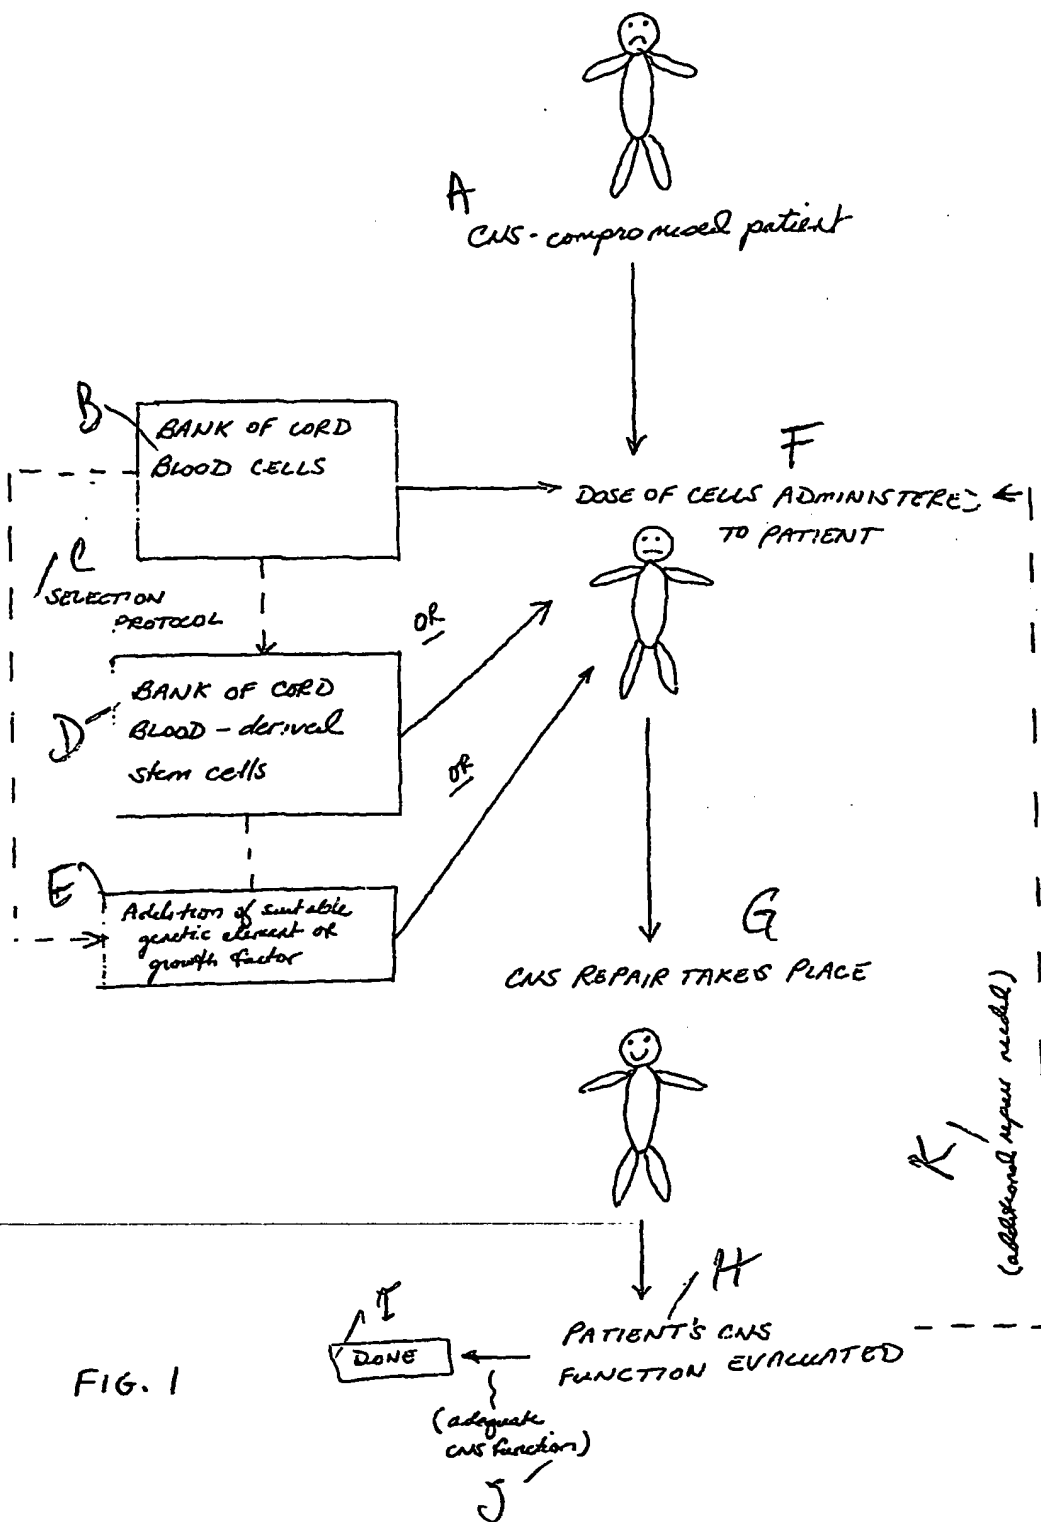 A
CNS-compromised patient
B
BANK OF CORD
BLOOD CELLS
F
DOSE OF CELLS ADMINISTERE
TO PATIENT
C
SELECTION
PROTOCOL
OR
D
BANK OF CORD
BLOOD - derived
stem cells
OR
E
Addition of suitable
genetic element or
growth factor
G
CNS REPAIR TAKES PLACE
K
(additional repair needed)
H
PATIENT'S CNS
FUNCTION EVALUATED
I
DONE
(adequate
CNS function)
J
FIG. 1